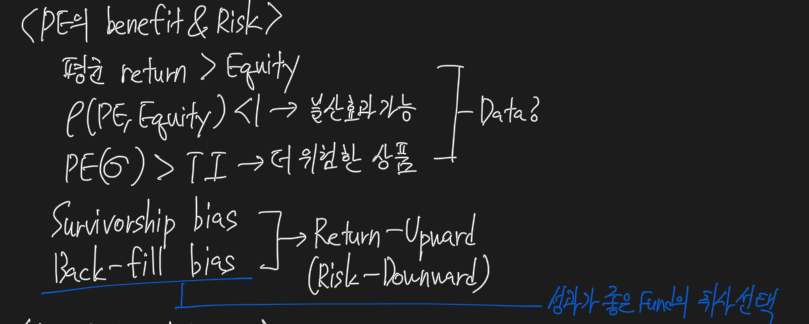 <PE의 benefit & Risk>
평균 return > Equity
ρ(PE, Equity) <1 → 분산효과가능
Data?
PE(σ) > TI → 더 위험한 상품
Survivorship bias
Back-fill bias
→ Return-Upward
(Risk-Downward)
성과가 좋은 Fund의 취사선택